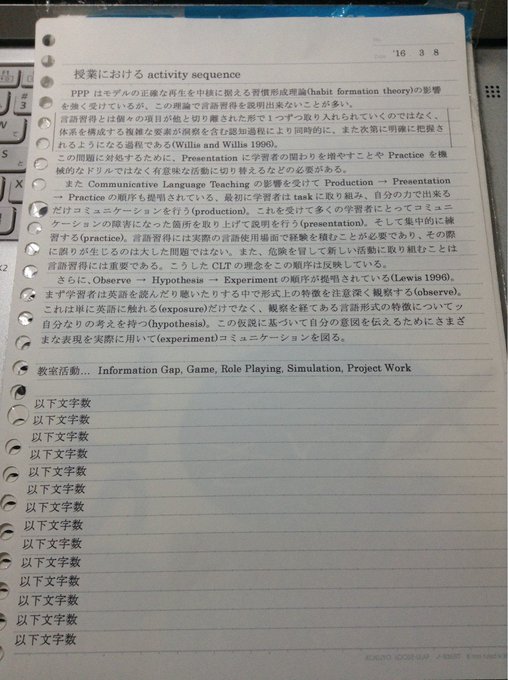 No.
Date '16 . 3 . 8
授業における activity sequence
PPP はモデルの正確な再生を中核に据える習慣形成理論(habit formation theory)の影響
を強く受けているが、この理論で言語習得を説明出来ないことが多い。
言語習得とは個々の項目が他と切り離された形で 1 つずつ取り入れられていくのではなく、
体系を構成する複雑な要素が洞察を含む認知過程により同時的に、また次第に明確に把握さ
れるようになる過程である(Willis and Willis 1996)。
この問題に対処するために、Presentation に学習者の関わりを増やすことや Practice を機
械的なドリルではなく有意味な活動に切り替えるなどの必要がある。
また Communicative Language Teaching の影響を受けて Production → Presentation
→ Practice の順序も提唱されている、最初に学習者は task に取り組み、自分の力で出来る
だけコミュニケーションを行う(production)。これを受けて多くの学習者にとってコミュニ
ケーションの障害になった箇所を取り上げて説明を行う(presentation)。そして集中的に練
習する(practice)。言語習得には実際の言語使用場面で経験を積むことが必要であり、その際
に誤りが生じるのは大した問題ではない。また、危険を冒して新しい活動に取り組むことは
言語習得には重要である。こうした CLT の理念をこの順序は反映している。
さらに、Observe → Hypothesis → Experiment の順序が提唱されている(Lewis 1996)。
まず学習者は英語を読んだり聴いたりする中で形式上の特徴を注意深く観察する(observe)。
これは単に英語に触れる(exposure)だけでなく、観察を経てある言語形式の特徴についてッ
自分なりの考えを持つ(hypothesis)。この仮説に基づいて自分の意図を伝えるためにさまざ
まな表現を実際に用いて(experiment)コミュニケーションを図る。
教室活動… Information Gap, Game, Role Playing, Simulation, Project Work
以下文字数
以下文字数
以下文字数
以下文字数
以下文字数
以下文字数
以下文字数
以下文字数
以下文字数
以下文字数
以下文字数
以下文字数
以下文字数
以下文字数